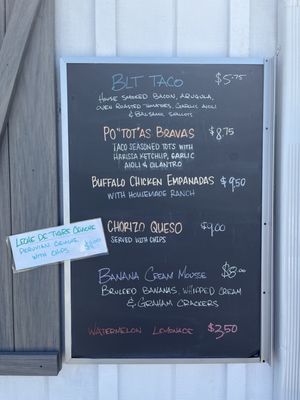 BLT TACO $5.75
HOUSE SMOKED BACON, ARUGULA,
OVEN ROASTED TOMATOES, GARLIC AIOLI
& BALSAMIC SHALLOTS
PO"TOT"AS BRAVAS $8.75
TACO SEASONED TOTS WITH
HARISSA KETCHUP, GARLIC
AIOLI & CILANTRO
BUFFALO CHICKEN EMPANADAS $9.50
WITH HOMEMADE RANCH
CHORIZO QUESO $9.00
SERVED WITH CHIPS
LECHE DE TIGRE CEVICHE
PERUVIAN CEVICHE
WITH CHIPS
BANANA CREAM MOUSSE $8.00
BRULEED BANANAS, WHIPPED CREAM
& GRAHAM CRACKERS
WATERMELON LEMONADE $3.50